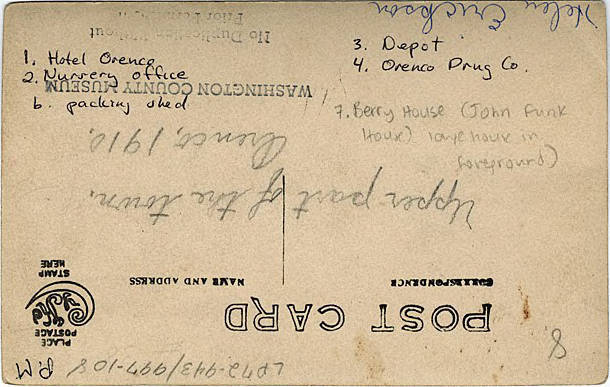 1. Hotel Orenco
2. Nursery office
6. packing shed
3. Depot
4. Orenco Drug Co.
7. Berry House (John Funk
House) large house in
foreground)
Helen Erickson
No Duplication Without
WASHINGTON COUNTY MUSEUM
POST CARD
CORRESPONDENCE
NAME AND ADDRESS
PLACE
POSTAGE
STAMP
HERE
Upper part of the town.
Orenco, 1910.
8
LP72-943/997-108
P.M